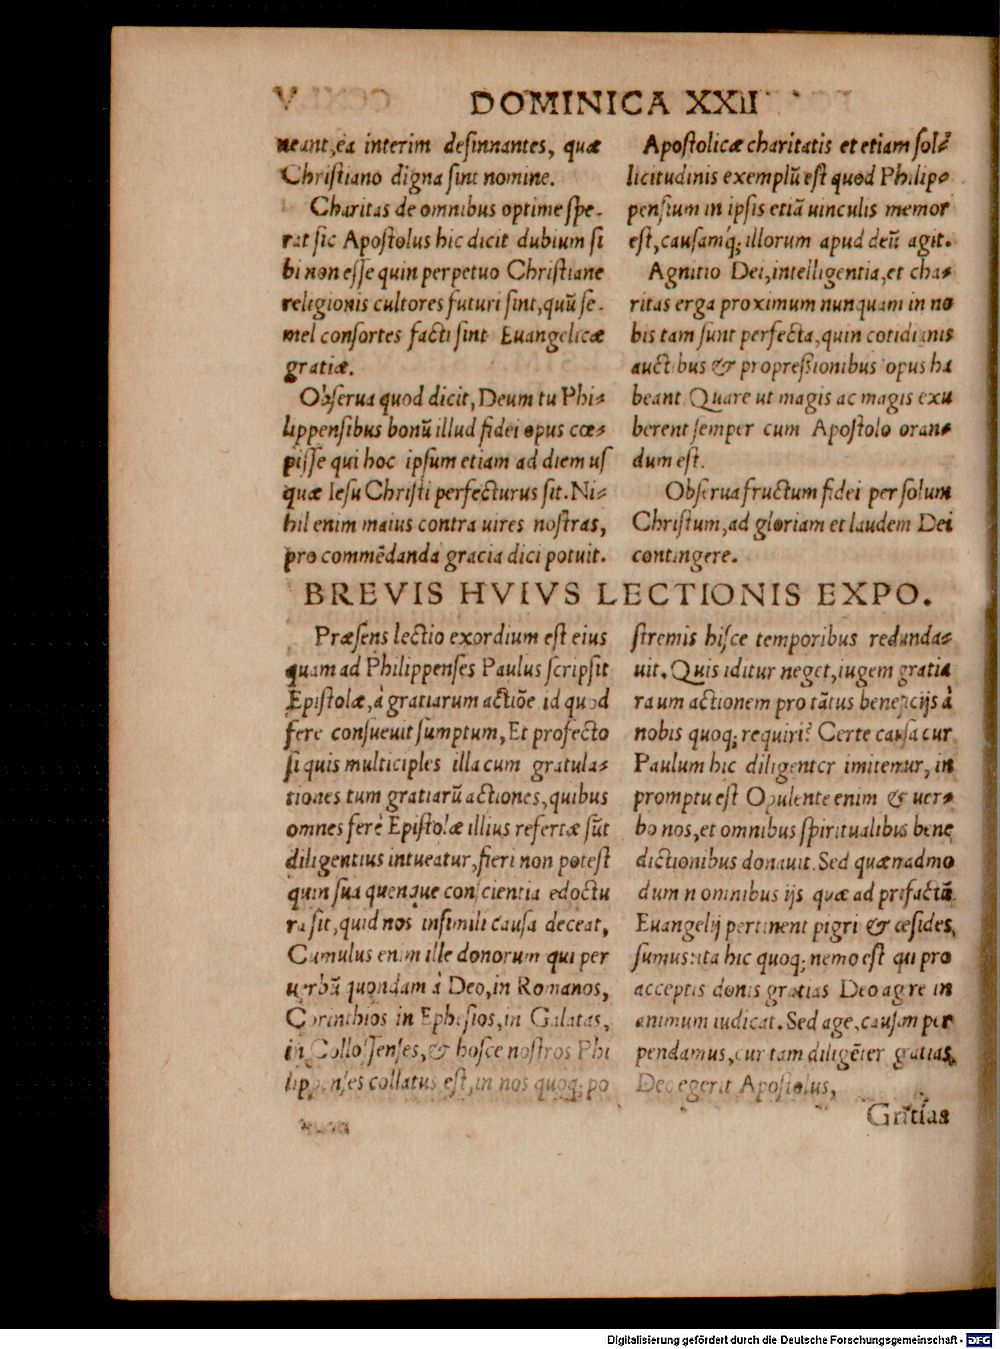 DOMINICA XXII
neant,ea interim desinnantes, quæ
Christiano digna sint nomine.
Charitas de omnibus optime spe-
rat sic Apostolus hic dicit dubium si
bi non esse quin perpetuo Christiane
religionis cultores futuri sint,quũ se-
mel consortes facti sint Euangelicæ
gratiæ.
Obserua quod dicit, Deum tu Phi-
lippensibus bonũ illud fidei opus cœ-
pisse qui hoc ipsum etiam ad diem us
quæ Iesu Christi perfecturus sit. Ni-
hil enim maius contra uires nostras,
pro commẽdanda gracia dici potuit.
Apostolicæ charitatis et etiam sol-
licitudinis exemplũ est quod Philip-
pensium in ipsis etiã uinculis memor
est, causamq́; illorum apud deũ agit.
Agnitio Dei, intelligentia, et cha-
ritas erga proximum nunquam in no
bis tam sunt perfecta, quin cotidianis
auctibus & propressionibus opus ha
beant Quare ut magis ac magis exu
berent semper cum Apostolo oran-
dum est.
Obserua fructum fidei per solum
Christum, ad gloriam et laudem Dei
contingere.
BREVIS HVIVS LECTIONIS EXPO.
Præsens lectio exordium est eius
quam ad Philippenses Paulus scripsit
Epistolæ, à gratiarum actiõe id quod
fere consueuit sumptum, Et profecto
si quis multiciples illa cum gratula-
tiones tum gratiarũ actiones, quibus
omnes ferè Epistolæ illius refertæ sũt
diligentius intueatur, fieri non potest
quin sua quenque conscientia edoctu
ra sit, quid nos insimili causa deceat,
Cumulus enim ille donorum qui per
uerbũ quondam à Deo, in Romanos,
Corinthios in Ephesios, in Galatas,
in Collossenses, & hosce nostros Phi
lippenses collatus est, in nos quoq; po
stremis hisce temporibus redunda-
uit. Quis iditur neget, iugem gratia
raum actionem pro tãtus beneficijs à
nobis quoq; requiri? Certe causa cur
Paulum hic diligenter imitemur, in
promptu est Opulente enim & uer-
bo nos, et omnibus spiritualibus bene
dictionibus donauit. Sed quæmadmo
dum n omnibus ijs quæ ad prifactũ
Euangelij pertinent pigri & cesides,
sumus:ita hic quoq; nemo est qui pro
acceptis donis gratias Deo agre in
animum iudicat. Sed age, causam per
pendamus, cur tam diligẽter gratias
Deo egerit Apostolus,
Gratias
Digitalisierung gefördert durch die Deutsche Forschungsgemeinschaft - DFG